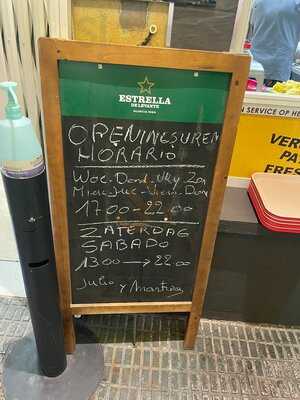 ESTRELLA
DE LEVANTE
OPENINGSUREN
HORARIO
Woe-Dond-Vry-Zon
Mier-Jue-Vier-Dom
17.00-22.00
ZATERDAG
SABADO
13.00 → 22.00
Julio y
N SERVICE OF HE
VE
PA
FRES